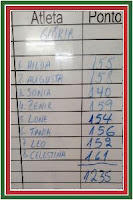 Atleta Ponto
GLÓRIA
1. HILDA 155
2. AUGUSTA 158
3. SONIA 140
4. ZENIR 159
5. LONE 154
6. TANIA 156
7. LEO 152
8. CELESTINA 161
1235